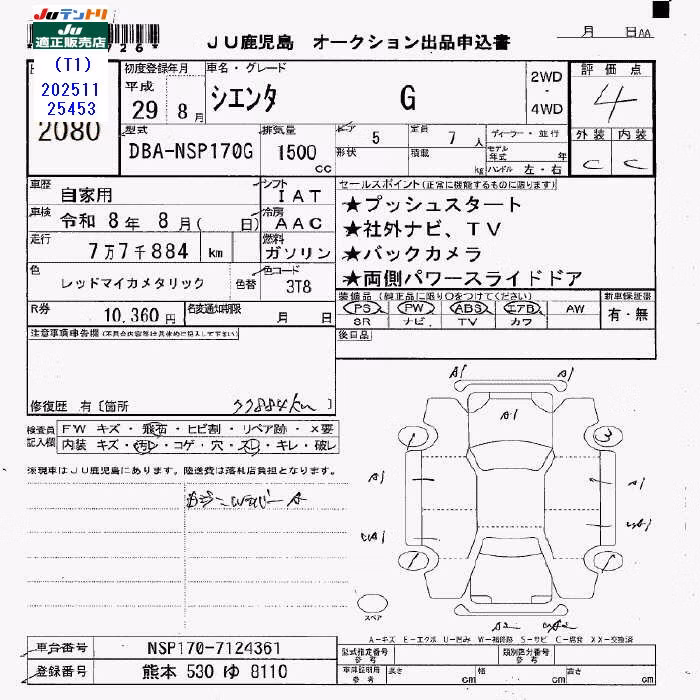 JUテントリ
JU
適正販売店
(T1)
202511
25453
2080
JU鹿児島 オークション出品申込書
月 日AA
初度登録年月
平成
29年 8月
車名・グレード
シエンタ G
2WD
・
4WD
評価点
4
外装 内装
C C
型式
DBA-NSP170G
排気量
1500
cc
ドア 5
形状
定員 7人
積載 kg
ディーラー・並行
モデル年式 年
ハンドル 左・右
車歴 自家用
シフト IAT
車検 令和 8年 8月( 日)
冷房 AAC
走行 7万7千884 km
燃料 ガソリン
色 レッドマイカメタリック 色替
色コード 3T8
R券 10,360円
名変通知期限 月 日
セールスポイント(正常に機能するものに限ります)
★プッシュスタート
★社外ナビ、TV
★バックカメラ
★両側パワースライドドア
装備品(純正品に限り○をつけてください)
PS PW ABS エアB AW
SR ナビ TV カワ
新車保証書
有・無
後日品
注意事項申告欄(不具合内容等は具体的に記入して下さい)
修復歴 有〔箇所 77884km 〕
検査員記入欄
FW キズ・飛石・ヒビ割・リペア跡・X要
内装 キズ・汚レ・コゲ・穴・スレ・キレ・破レ
※現車はJU鹿児島にあります。陸送費は落札店負担となります。
A1 A1
A1
1 3
A1 A1
UA1 UA1
1 1
スペア
A2
A-キズ E-エクボ U-凹み W-補修跡 S-サビ C-腐発 XX-交換済
車台番号 NSP170-7124361
登録番号 熊本 530 ゆ 8110
型式指定番号 参考
類別区分番号 参考
車庫証明用 参考 長さ cm 幅 cm 高さ cm